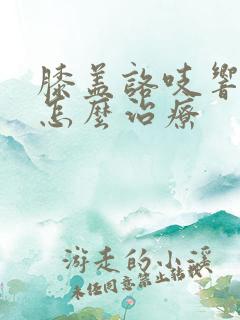 膝盖咯吱响
怎麽治疗
游走的小溪
未经同意禁止转载